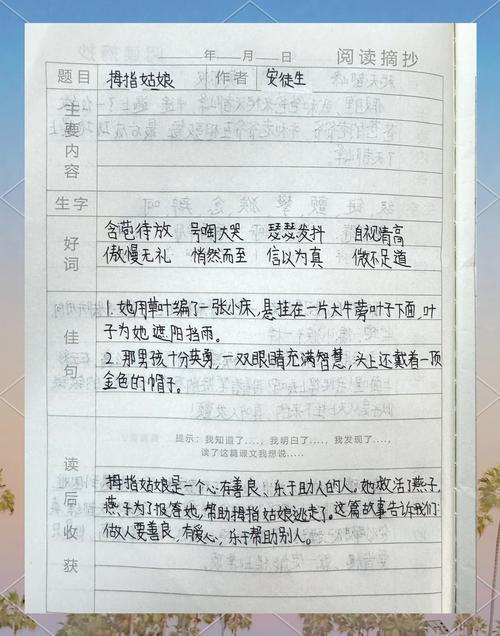 年 月 日 阅读摘抄
题目 拇指姑娘 作者 安徒生
主要内容
生字
好词
含苞待放 号啕大哭 瑟瑟发抖 自视清高
傲慢无礼 悄然而至 信以为真 微不足道
佳句
1. 她用草叶编了一张小床,悬挂在一片大牛蒡叶子下面,叶
子为她遮阳挡雨。
2. 那男孩十分英勇,一双眼睛充满智慧,头上还戴着一顶
金色的帽子。
读后收获
提示:我知道了....,我明白了....,我发现了....,
读了这篇课文我想说.....
拇指姑娘是一个心有善良、乐于助人的人。她救活了燕子,
燕子为了报答她,帮助拇指姑娘逃走了。这篇故事告诉我们:
做人要善良,有爱心,乐于帮助别人。